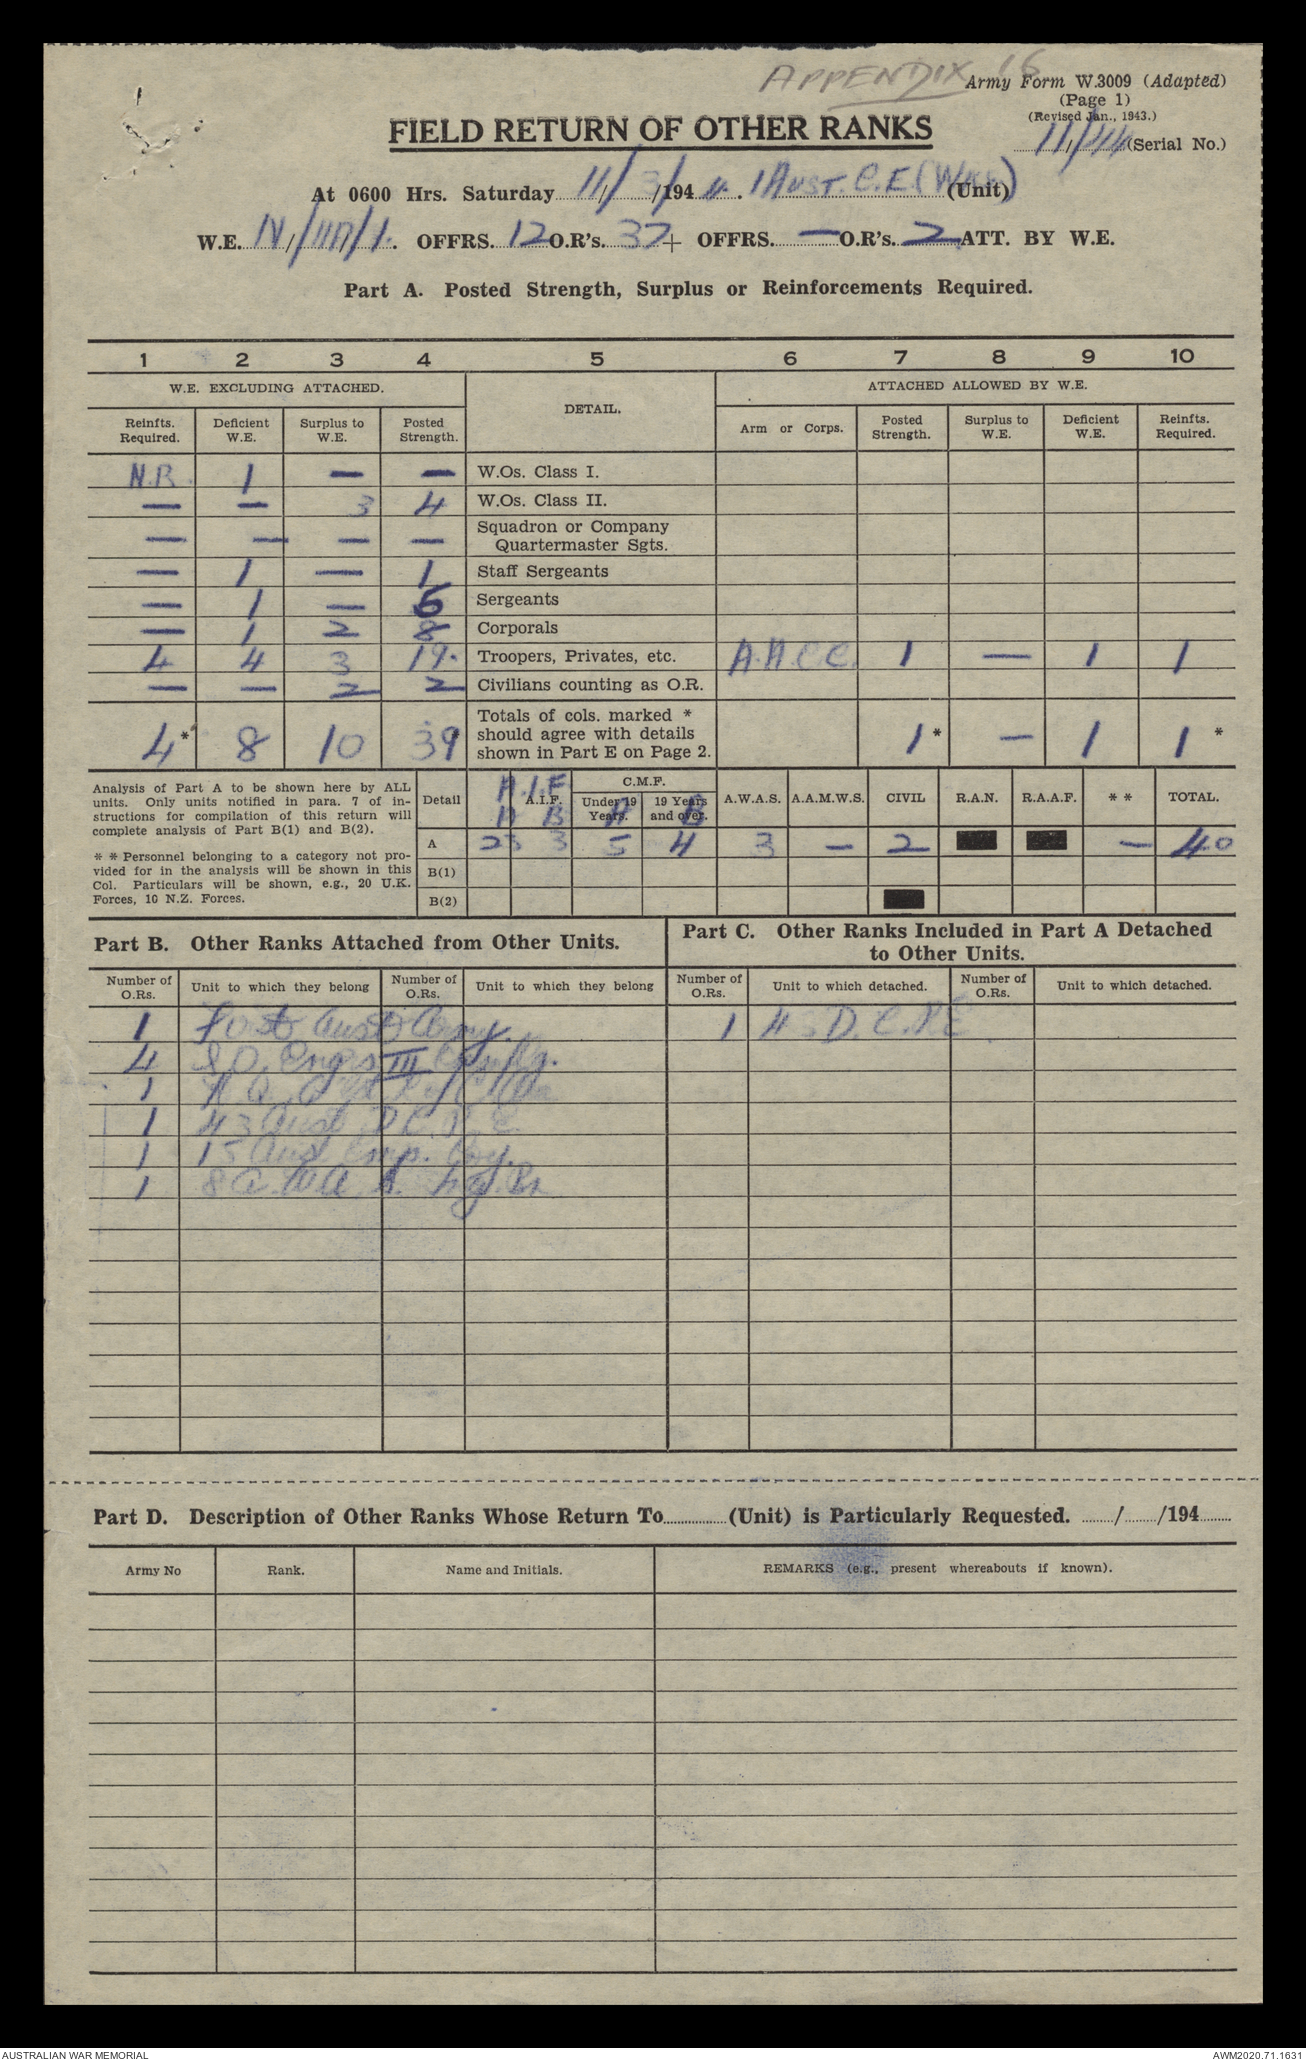 APPENDIX 16
Army Form W.3009 (Adapted)
(Page 1)
(Revised Jan., 1943.)
11/44 (Serial No.)
FIELD RETURN OF OTHER RANKS
At 0600 Hrs. Saturday 11/3/1944. 1 AUST. C.E. (Wks) (Unit)
W.E. IV/ /1. OFFRS. 12 O.R's. 37 + OFFRS. — O.R's. 2 ATT. BY W.E.
Part A. Posted Strength, Surplus or Reinforcements Required.
1 2 3 4 5 6 7 8 9 10
W.E. EXCLUDING ATTACHED. DETAIL. ATTACHED ALLOWED BY W.E.
Reinfts. Required. Deficient W.E. Surplus to W.E. Posted Strength. Arm or Corps. Posted Strength. Surplus to W.E. Deficient W.E. Reinfts. Required.
N.R. 1 — — W.Os. Class I.
— — 3 4 W.Os. Class II.
— — — — Squadron or Company Quartermaster Sgts.
— 1 — 1 Staff Sergeants
— 1 — 5 Sergeants
— 1 2 8 Corporals
4 4 3 19. Troopers, Privates, etc. A.A.C.C. 1 — 1 1
— — 2 2 Civilians counting as O.R.
4* 8 10 39 Totals of cols. marked * should agree with details shown in Part E on Page 2. 1* — 1 1*
Analysis of Part A to be shown here by ALL
units. Only units notified in para. 7 of in-
structions for compilation of this return will
complete analysis of Part B(1) and B(2).
* * Personnel belonging to a category not pro-
vided for in the analysis will be shown in this
Col. Particulars will be shown, e.g., 20 U.K.
Forces, 10 N.Z. Forces.
Detail A.I.F. A.I.F. A B C.M.F. Under 19 Years. A 19 Years and over. B A.W.A.S. A.A.M.W.S. CIVIL R.A.N. R.A.A.F. * * TOTAL.
A 23 3 5 4 3 — 2 — 40
B(1)
B(2)
Part B. Other Ranks Attached from Other Units.
Part C. Other Ranks Included in Part A Detached
to Other Units.
Number of O.Rs. Unit to which they belong Number of O.Rs. Unit to which they belong Number of O.Rs. Unit to which detached. Number of O.Rs. Unit to which detached.
1 First Aust Army. 1 43 D.C.R.E.
4 SD. Engrs III
1 H.Q.
1 43 Aust D.C.R.E.
1 15 Aust Emp. Coy.
1 8 A.W.A.S.
Part D. Description of Other Ranks Whose Return To (Unit) is Particularly Requested. / /194
Army No Rank. Name and Initials. REMARKS (e.g., present whereabouts if known).
AUSTRALIAN WAR MEMORIAL
AWM2020.71.1631